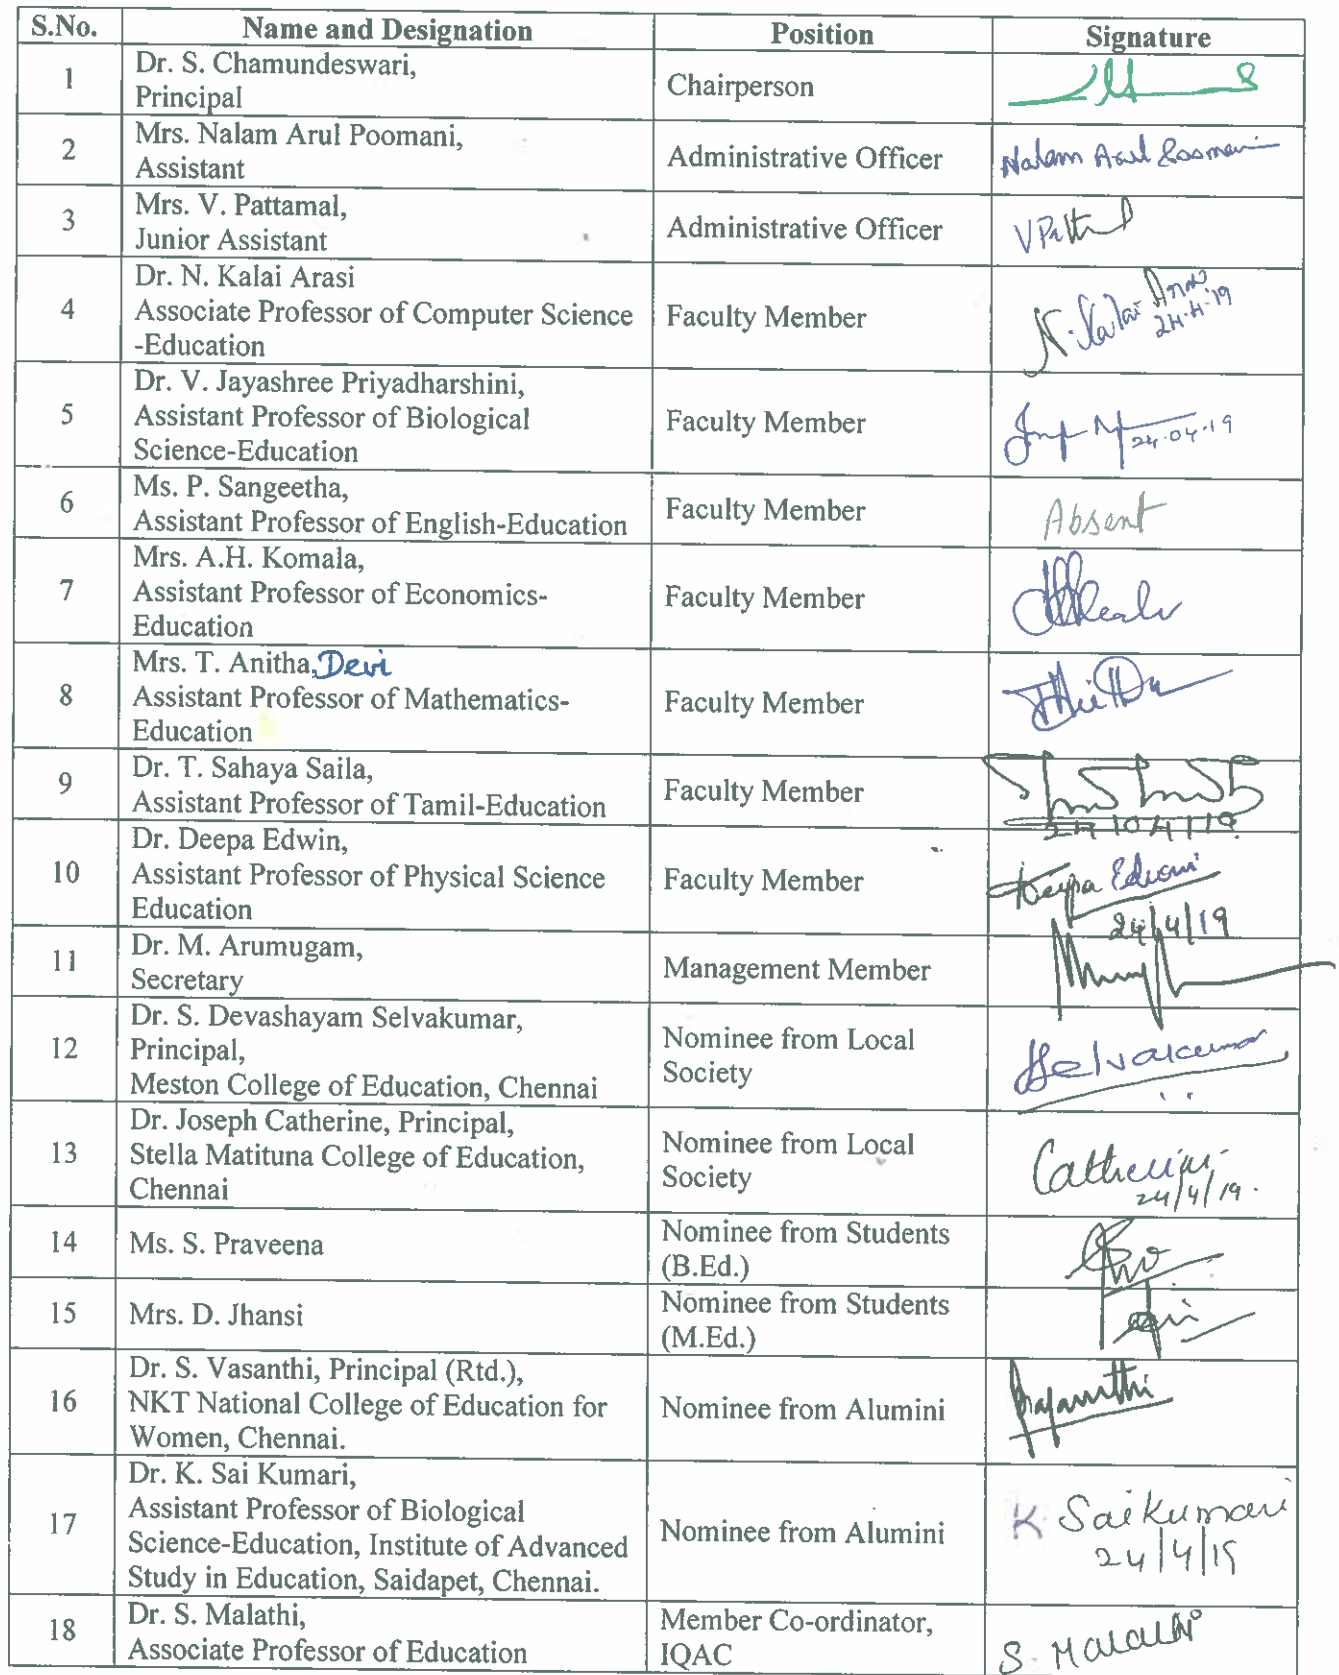 S.No. Name and Designation Position Signature
1 Dr. S. Chamundeswari,
Principal
Chairperson
2 Mrs. Nalam Arul Poomani,
Assistant
Administrative Officer
Nalam Arul Poomani
3 Mrs. V. Pattamal,
Junior Assistant
Administrative Officer
4 Dr. N. Kalai Arasi
Associate Professor of Computer Science
-Education
Faculty Member
N. Kalai
24.4.19
5 Dr. V. Jayashree Priyadharshini,
Assistant Professor of Biological
Science-Education
Faculty Member
24.04.19
6 Ms. P. Sangeetha,
Assistant Professor of English-Education
Faculty Member
Absent
7 Mrs. A.H. Komala,
Assistant Professor of Economics-
Education
Faculty Member
8 Mrs. T. Anitha, Devi
Assistant Professor of Mathematics-
Education
Faculty Member
9 Dr. T. Sahaya Saila,
Assistant Professor of Tamil-Education
Faculty Member
24/04/19
10 Dr. Deepa Edwin,
Assistant Professor of Physical Science
Education
Faculty Member
Deepa Edwin
24/4/19
11 Dr. M. Arumugam,
Secretary
Management Member
12 Dr. S. Devashayam Selvakumar,
Principal,
Meston College of Education, Chennai
Nominee from Local
Society
Selvakumar
13 Dr. Joseph Catherine, Principal,
Stella Matituna College of Education,
Chennai
Nominee from Local
Society
Catherine
24/4/19.
14 Ms. S. Praveena
Nominee from Students
(B.Ed.)
15 Mrs. D. Jhansi
Nominee from Students
(M.Ed.)
16 Dr. S. Vasanthi, Principal (Rtd.),
NKT National College of Education for
Women, Chennai.
Nominee from Alumini
17 Dr. K. Sai Kumari,
Assistant Professor of Biological
Science-Education, Institute of Advanced
Study in Education, Saidapet, Chennai.
Nominee from Alumini
K Sai Kumari
24/4/19
18 Dr. S. Malathi,
Associate Professor of Education
Member Co-ordinator,
IQAC
S. Malathi